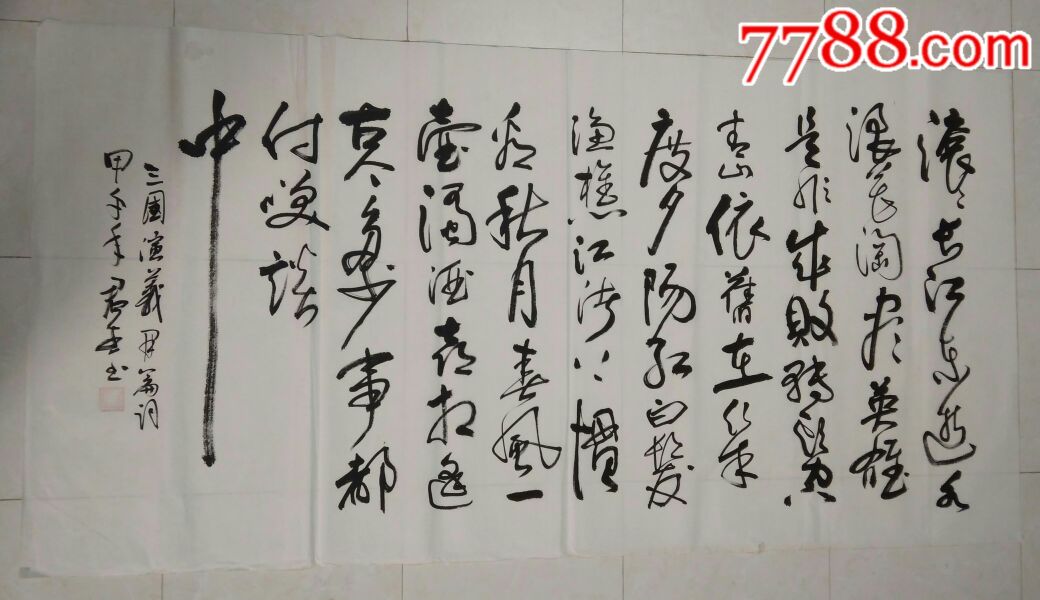 7788.com
滚滚长江东逝水
浪花淘尽英雄
是非成敗转头空
青山依舊在幾
度夕阳红白髮
渔樵江渚上慣
看秋月春風一
壶濁酒喜相逢
古今多少事都
付笑谈
中
三國演義开篇词
甲午年君书